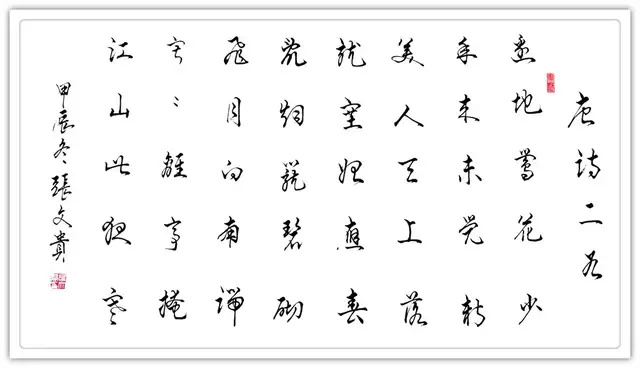 唐诗二首
邊地鶯花少
年来未覺新
美人天上落
龍塞始應春
亂烟籠碧砌
飛月向南端
寂〻離亭掩
江山此夜寒
甲辰冬張文貴